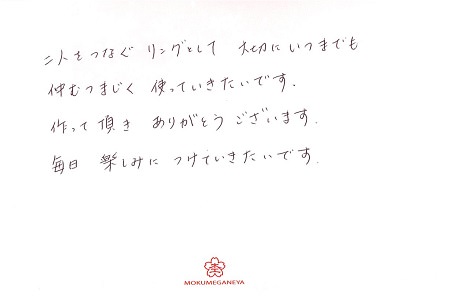 二人をつなぐ リングとして 大切に いつまでも
仲むつまじく 使っていきたいです.
作って頂き ありがとう ございます.
毎日 楽しみに つけていきたいです.
MOKUMEGANEYA